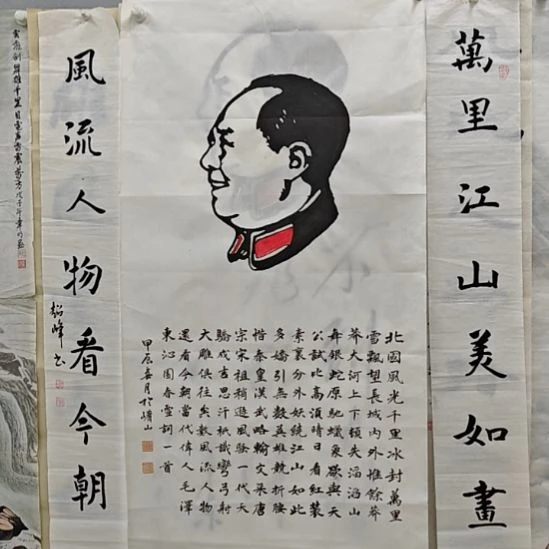 萬里江山美如畫
北國風光千里冰封萬里
雪飄望長城內外惟餘莽
莽大河上下頓失滔滔山
舞銀蛇原馳蠟象欲與天
公試比高須晴日看紅裝
素裹分外妖嬈江山如此
多嬌引無數英雄競折腰
惜秦皇漢武略輸文采唐
宗宋祖稍遜風騷一代天
驕成吉思汗祇識彎弓射
大雕俱往矣數風流人物
還看今朝當代偉人毛澤
東沁園春雪詞一首
甲辰月於嶗山
風流人物看今朝
韶峰书
雄千里目電声雷震萬方戊子年